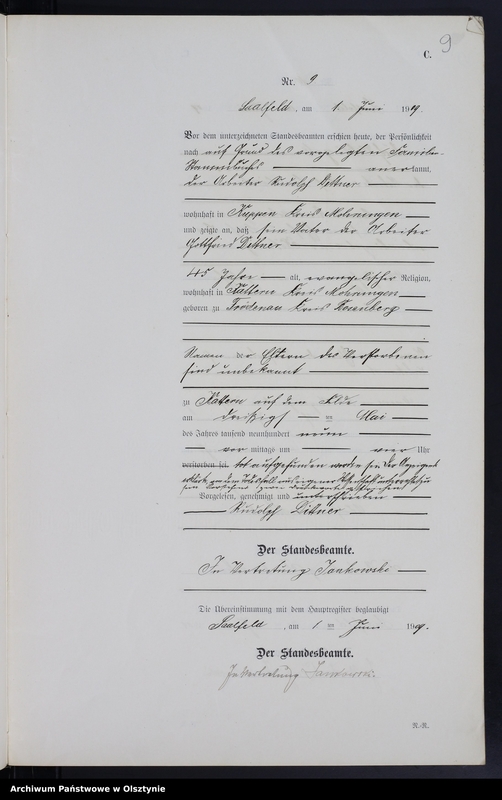 9
C.
Nr. 9
Saalfeld, am 1. Juni 1909.
Vor dem unterzeichneten Standesbeamten erschien heute, der Persönlichkeit
nach auf Grund des vorgelegten Familien-
Stammbuches anerkannt,
der Arbeiter Rudolph Dittner
wohnhaft in Kuppen Kreis Mohrungen
und zeigte an, daß sein Vater der Arbeiter
Gottfried Dittner
45 Jahre alt, evangelischer Religion,
wohnhaft in Kreis Mohrungen
geboren zu Kreis Rosenberg
Namen der Eltern des Verstorbenen
sind unbekannt
zu auf dem Felde
am dreißigst en Mai
des Jahres tausend neunhundert neun
vor mittags um vier Uhr
verstorben sei. tot aufgefunden worden sei. Der Anzeigende
Vorgelesen, genehmigt und unterschrieben
Rudolph Dittner
Der Standesbeamte.
In Vertretung Jankowski
Die Übereinstimmung mit dem Hauptregister beglaubigt
Saalfeld, am 1 ten Juni 1909.
Der Standesbeamte.
In Vertretung
N.-R.
Archiwum Państwowe w Olsztynie